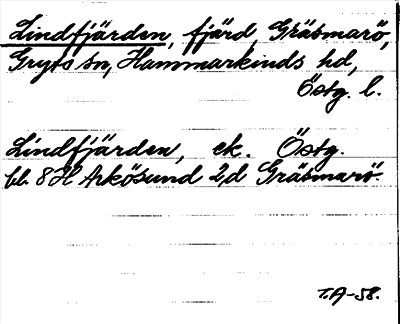 Lindfjärden, fjärd, Gräsmarö,
Gryts sn, Hammarkinds hd,
Östg. l.
Lindfjärden, ek. Östg.
bl. 8H Arkösund 2d Gräsmarö.
T.A-58.